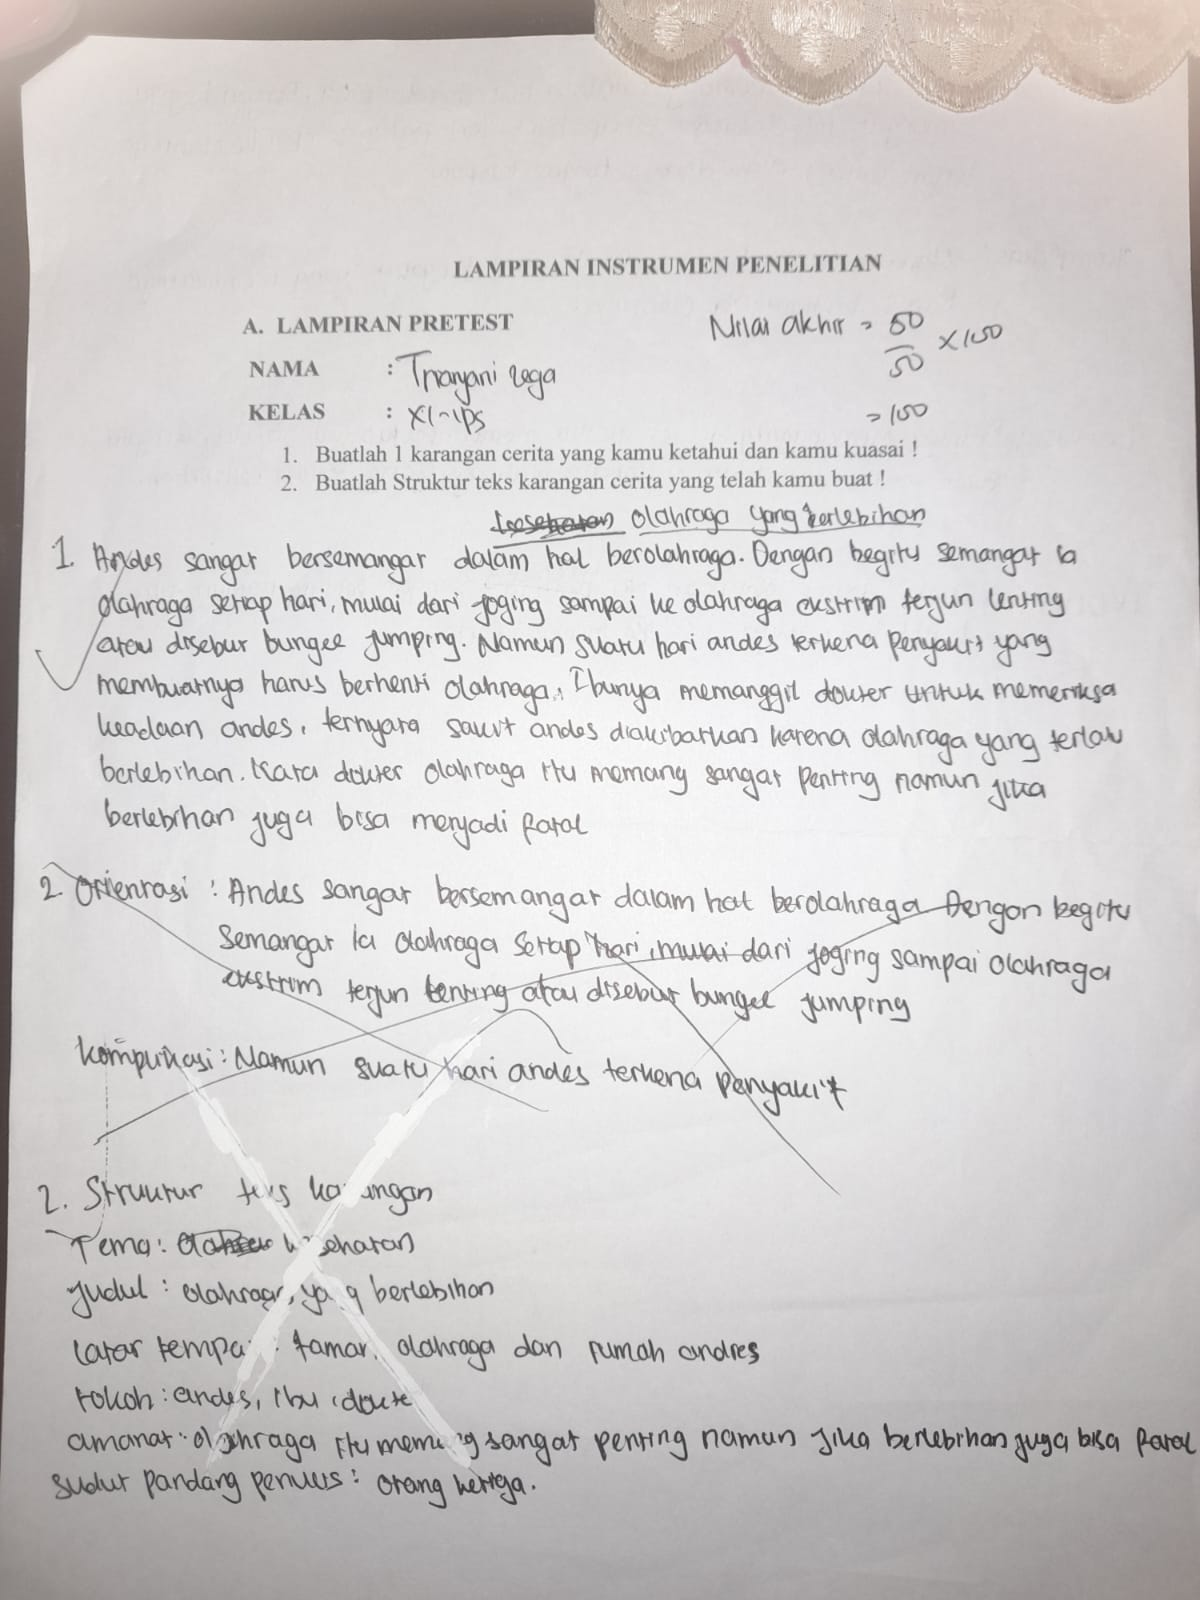 LAMPIRAN INSTRUMEN PENELITIAN
A. LAMPIRAN PRETEST
Nilai akhir = 50
50 × 100
= 100
NAMA : Triaryani Rega
KELAS : XI-IPS
1. Buatlah 1 karangan cerita yang kamu ketahui dan kamu kuasai !
2. Buatlah Struktur teks karangan cerita yang telah kamu buat !
olahraga yang berlebihan
1. Andes sangat bersemangat dalam hal berolahraga. Dengan begitu semangat ia
olahraga setiap hari, mulai dari joging sampai ke olahraga ekstrim terjun lenting
atau disebut bungee jumping. Namun suatu hari andes terkena penyakit yang
membuatnya harus berhenti olahraga, Ibunya memanggil dokter untuk memeriksa
keadaan andes, ternyata sakit andes diakibatkan karena olahraga yang terlalu
berlebihan. Kata dokter olahraga itu memang sangat penting namun jika
berlebihan juga bisa menjadi fatal
2. Orientasi : Andes sangat bersemangat dalam hal berolahraga Dengan begitu
semangat ia olahraga setiap hari, mulai dari joging sampai olahraga
ekstrim terjun lenting atau disebut bungee jumping
Komplikasi : Namun suatu hari andes terkena penyakit
2. Struktur teks karangan
Tema : kesehatan
judul : olahraga yang berlebihan
latar tempat : taman olahraga dan rumah andres
tokoh : andes, ibu, dokte
amanat : olahraga itu memang sangat penting namun jika berlebihan juga bisa fatal
sudut pandang penulis : orang ketiga.